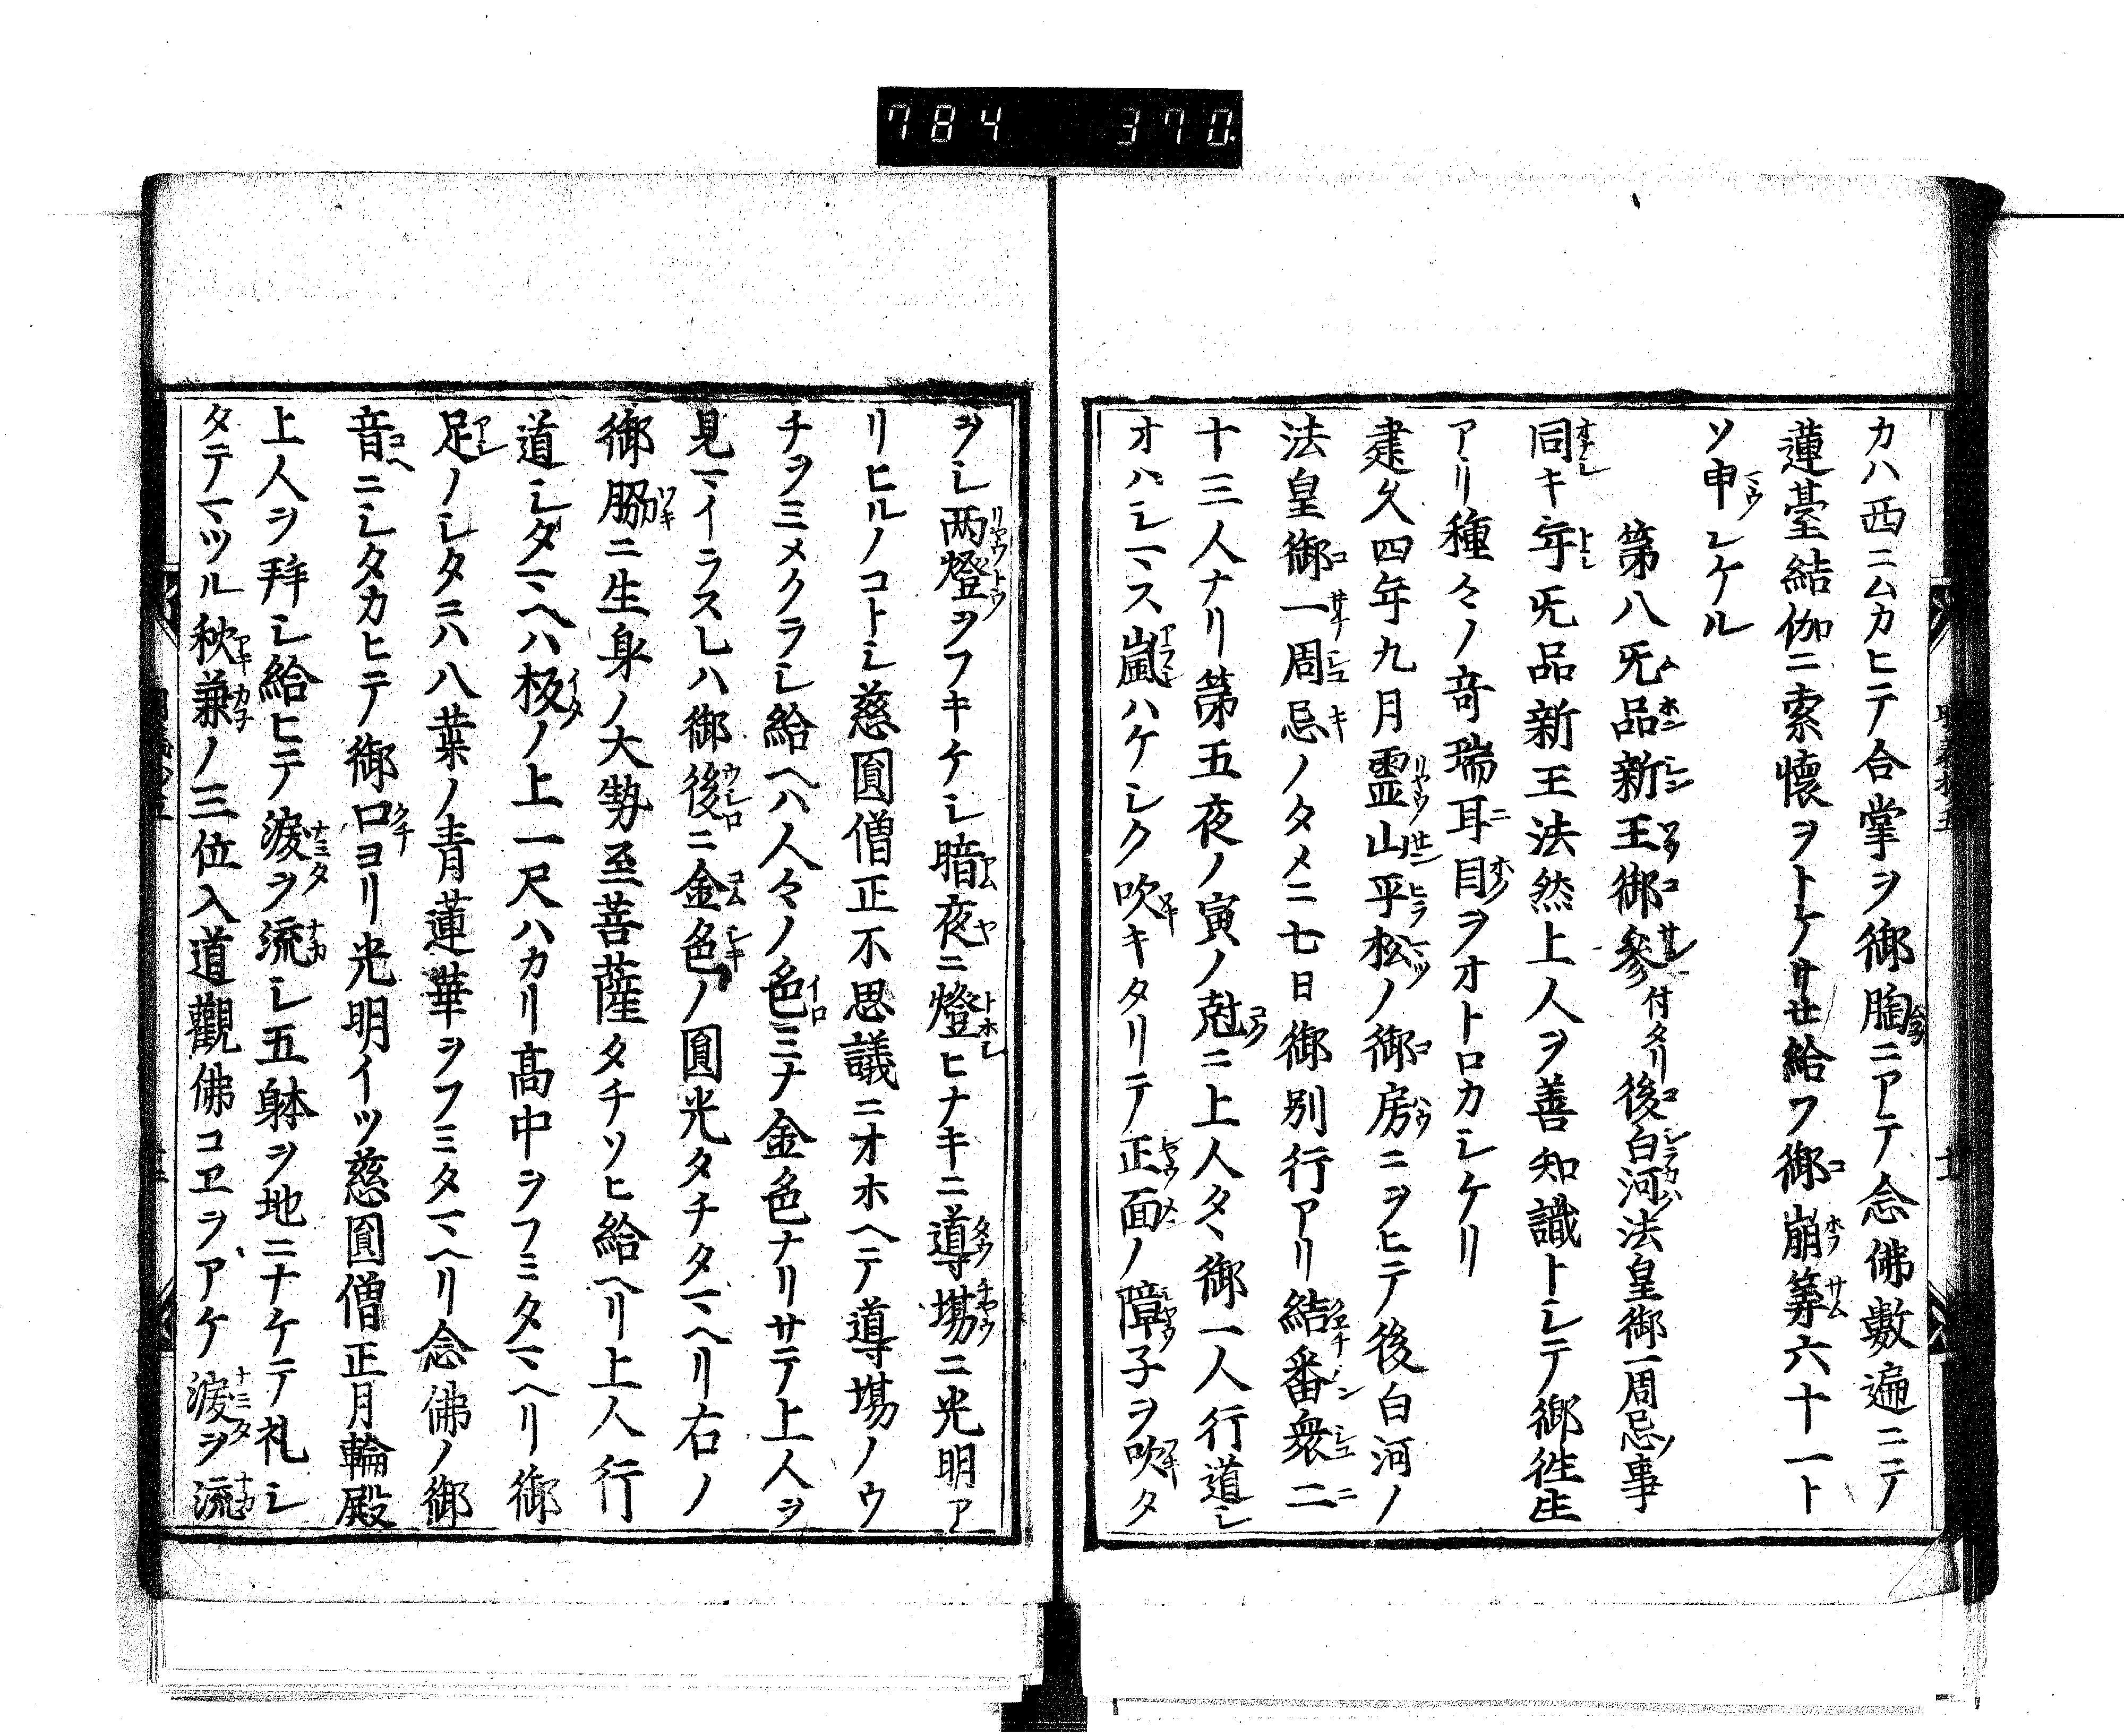 784 370
カハ西ニムカヒテ合掌ヲ御胸ニアテ念佛數遍ニテ
蓮臺結伽ニ索懷ヲトケサせ給フ御崩筭六十一ト
ソ申シケル
第八旡品新王御參付タリ後白河法皇御一周忌ノ事
同キ年旡品新王法然上人ヲ善知識トシテ御徃生
アリ種々ノ竒瑞耳目ヲオトロカシケリ
建久四年九月霊山平松ノ御房ニヲヒテ後白河ノ
法皇御一周忌ノタメニ七日御別行アリ結番衆二
十三人ナリ第五夜ノ寅ノ尅ニ上人タヽ御一人行道シ
オハシマス嵐ハケシク吹キタリテ正面ノ障子ヲ吹タ
ヲシ両燈ヲフキケシ暗夜ニ燈ヒナキニ導塲ニ光明ア
リヒルノコトシ慈圓僧正不思議ニオホヘテ導塲ノウ
チヲミメクラシ給ヘハ人々ノ色ミナ金色ナリサテ上人ヲ
見マイラスレハ御後ニ金色ノ圓光タチタマヘリ右ノ
御脇ニ生身ノ大勢至菩薩タチソヒ給ヘリ上人行
道シタマヘハ板ノ上一尺ハカリ高中ヲフミタマヘリ御
足ノシタニハ八葉ノ青蓮華ヲフミタマヘリ念佛ノ御
音ニシタカヒテ御口ヨリ光明イツ慈圓僧正月輪殿
上人ヲ拜シ給ヒテ淚ヲ流シ五躰ヲ地ニナケテ礼シ
タテマツル秋兼ノ三位入道觀佛コヱヲアケ淚ヲ流